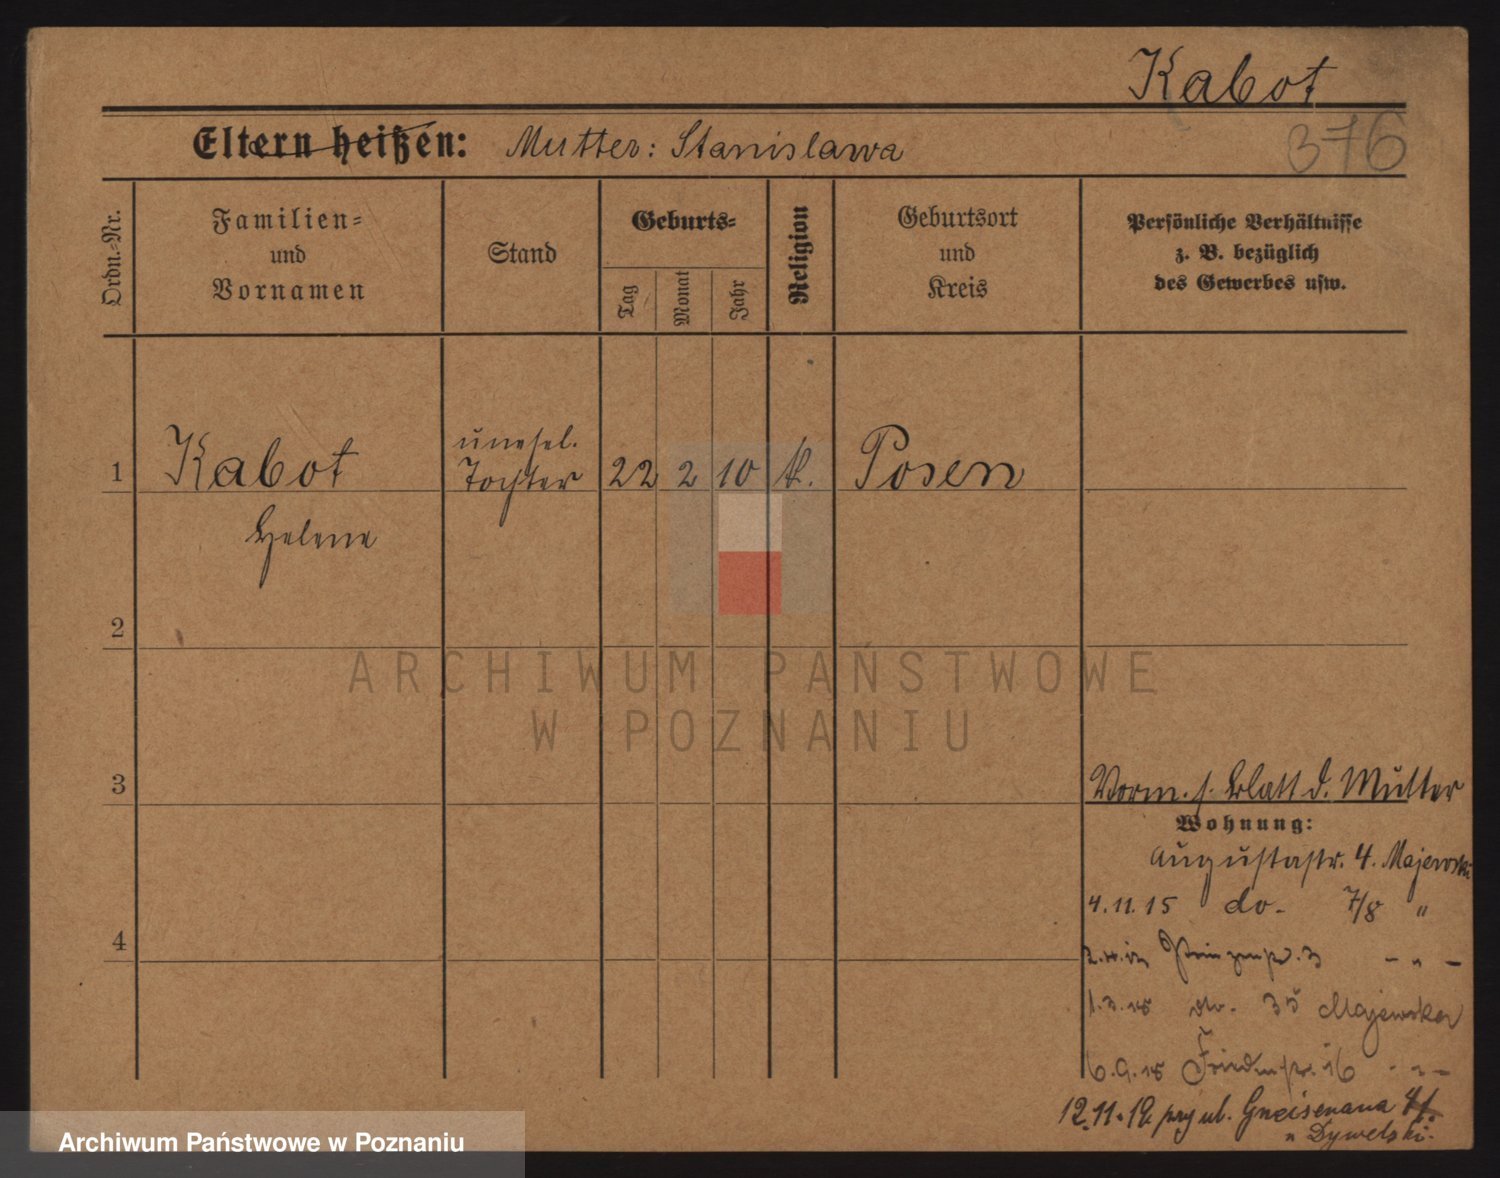 Kabot
Eltern heißen: Mutter: Stanislawa
376
Ordn.-Nr.
Familien-
und
Vornamen
Stand
Geburts-
Tag
Monat
Jahr
Religion
Geburtsort
und
Kreis
Persönliche Verhältnisse
z. B. bezüglich
des Gewerbes usw.
unehel.
1 Kabot Tochter 22 2 10 k. Posen
Helene
2
3
Vorm. s. Blatt d. Mutter
Wohnung:
Augustastr. 4. Majewski
4.11.15 do. 7/8 "
4
Prinzenstr. 3 - " -
do. 35 Majewska
6.9.18 16 - " -
12.11.19 przy ul. Gneisenaua 4
u Dywelski.
ARCHIWUM PAŃSTWOWE
W POZNANIU
Archiwum Państwowe w Poznaniu